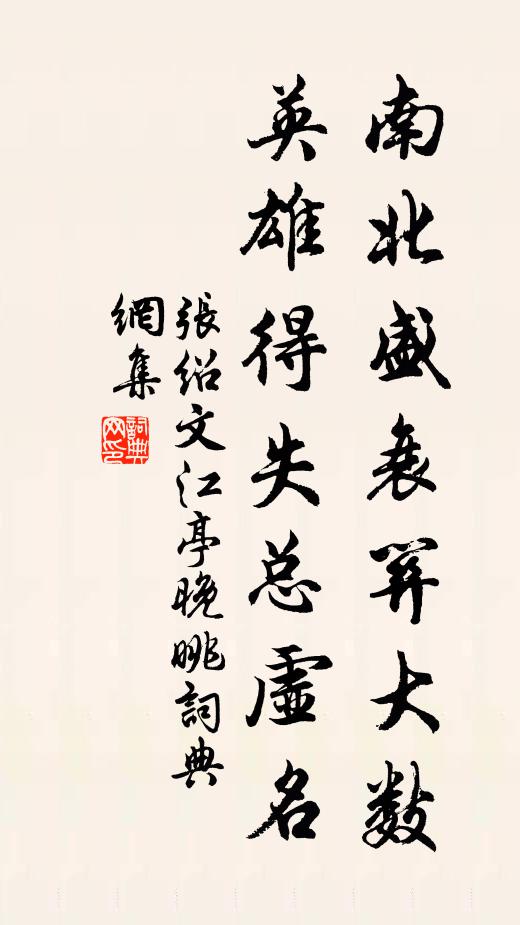 南北盛衰關大数
英雄得失总虛名
張绍文江亭晚眺詞典
網集
詞典网印